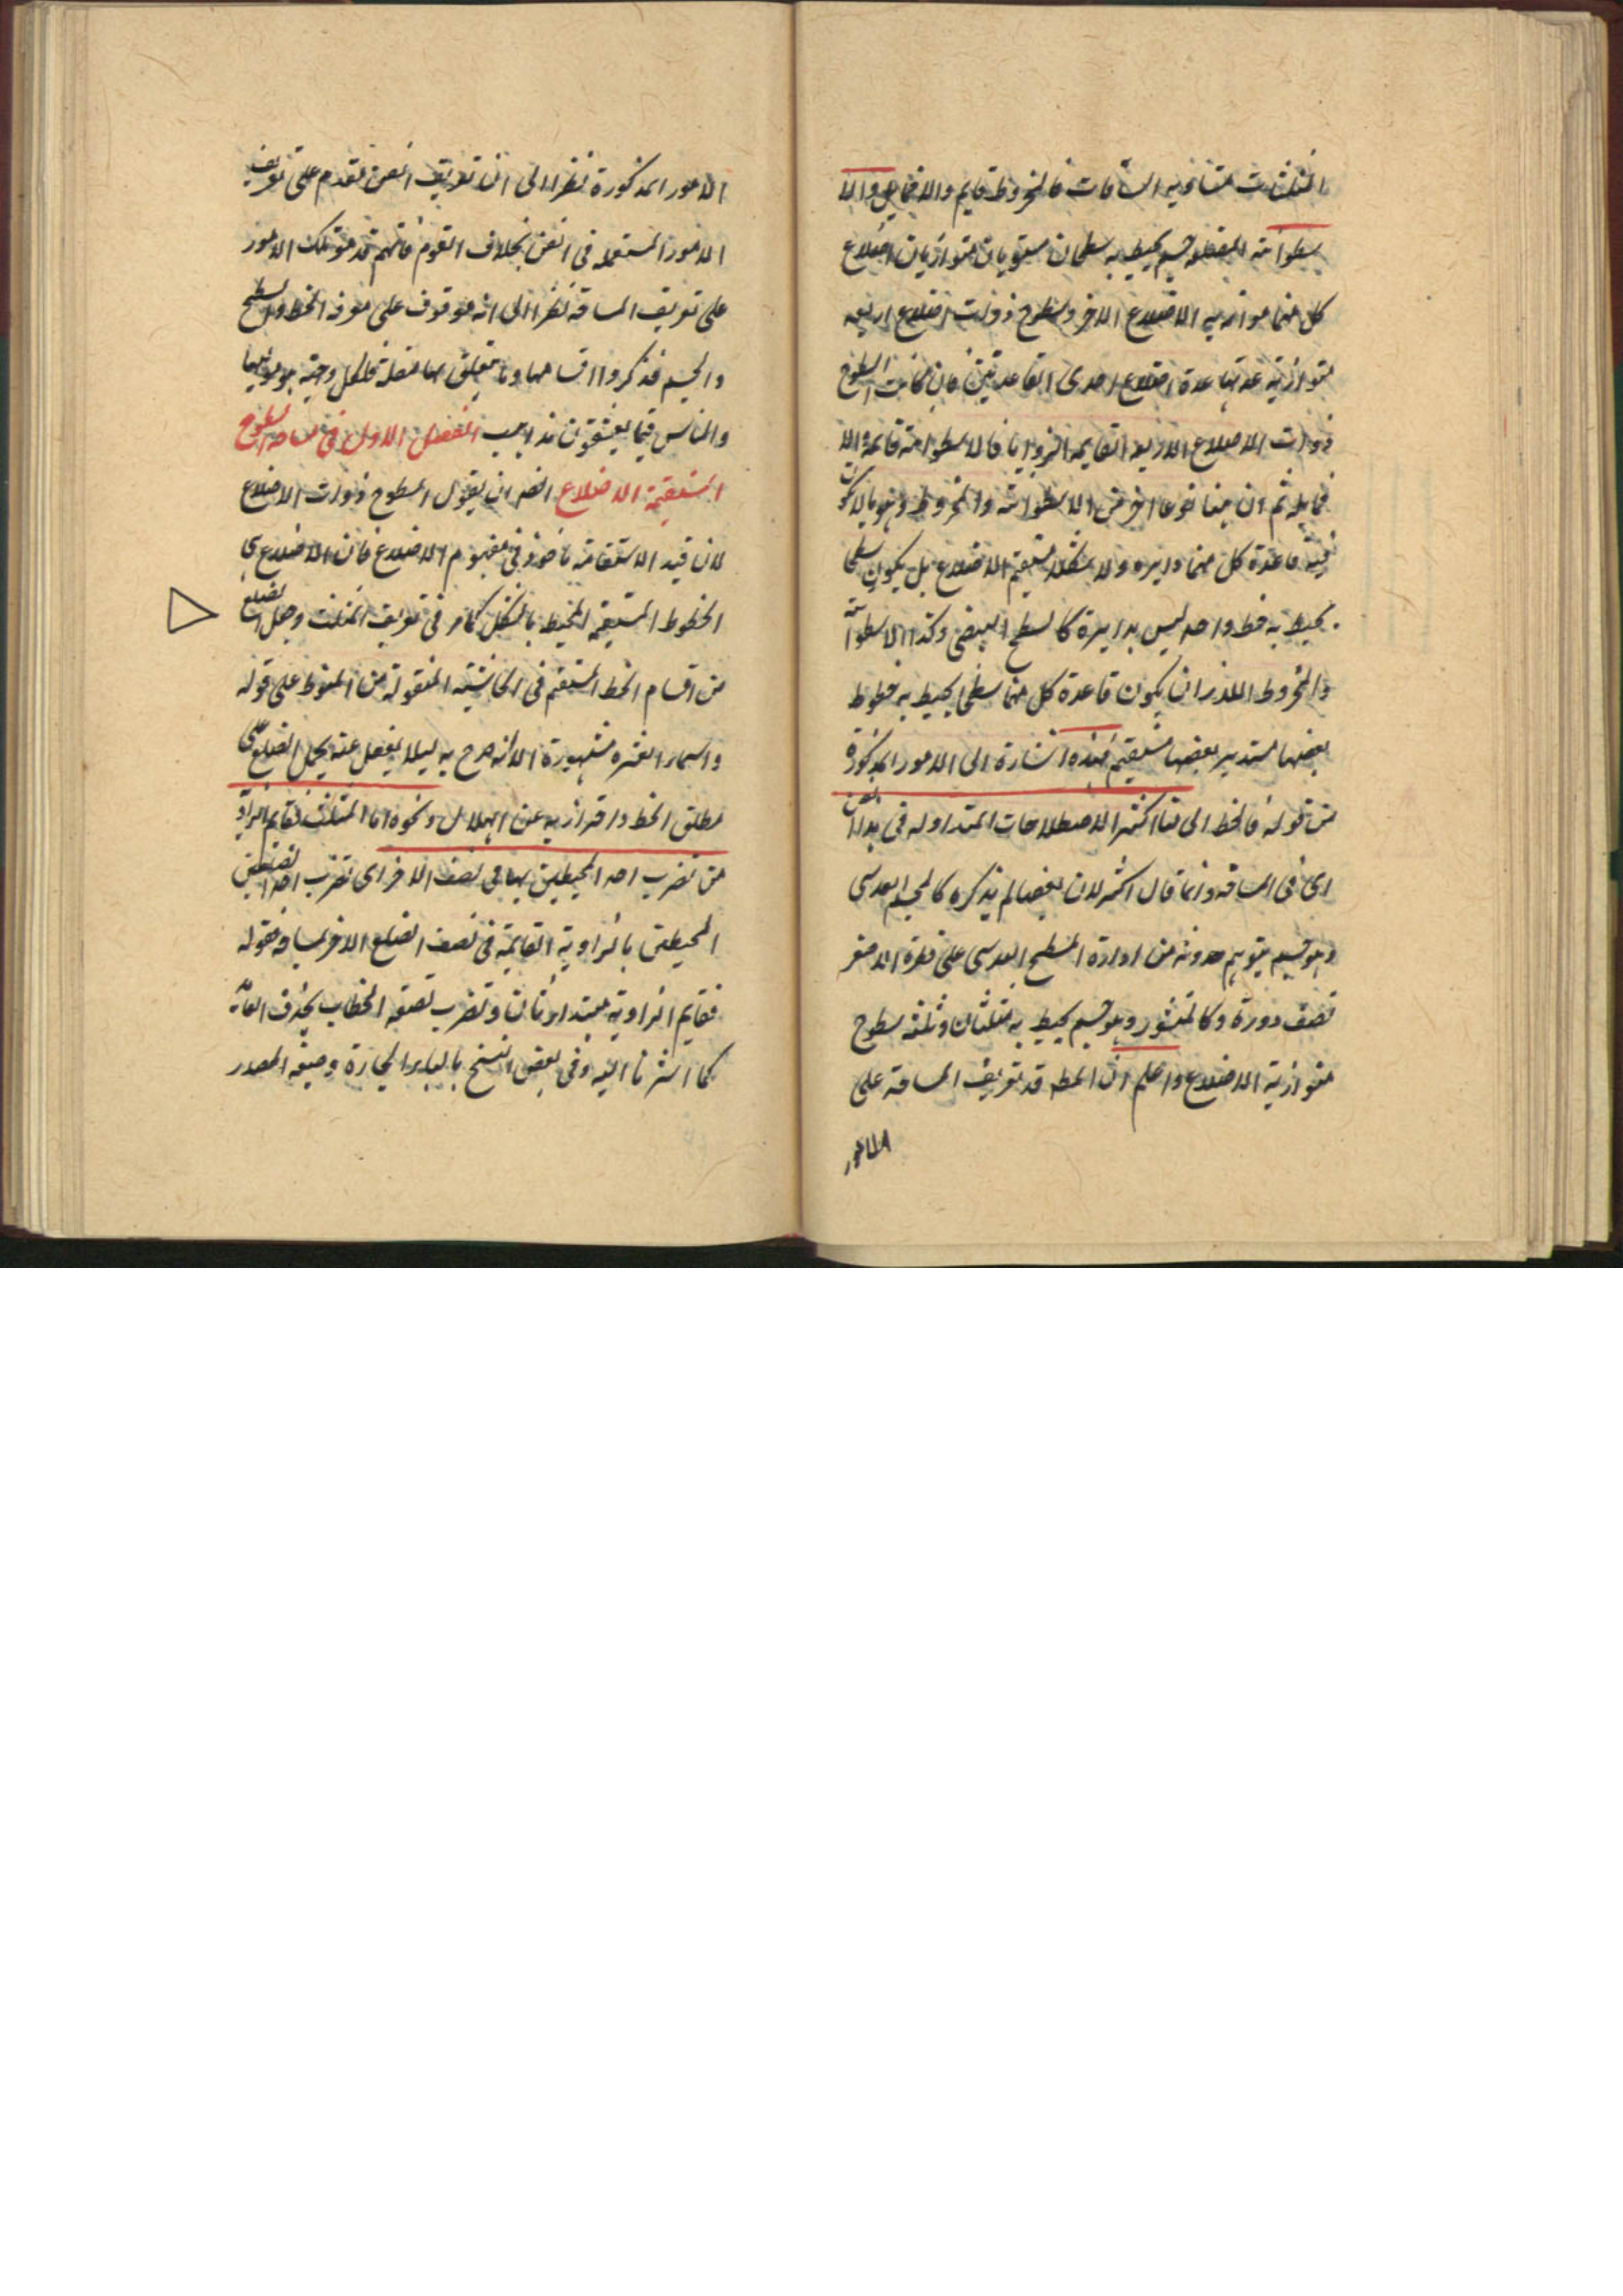 المثلثات متساوية الساقات فالمخروط قايم والا فمايل والا
سطوانة المضلعة جسم يحيط به سطحان مستويان متوازيان اضلاع
كل منهما موازية الاضلاع الاخر وسطوح ذوات اضلاع اربعة
متوازية عدتها عدة اضلاع احدى القاعدتين فان كانت السطوح
ذوات الاضلاع الاربعة القايمة الزوايا فالاسطوانة قايمة والا
فمايلة ثم ان هنا نوعا اخر من الاسطوانة والمخروط وهو مالا يكون
فيه قاعدة كل منهما دايرة ولا شكلا مستقيم الاضلاع بل يكون سطحا
يحيط به خط واحد ليس بدايرة كالسطح البيضي وكذا الاسطوانة
والمخروط اللذان يكون قاعدة كل منهما سطحا يحيط به خطوط
بعضها مستدير بعضها مستقيم فهذه اشارة الى الامور المذكورة
من قوله فالخط الى هنا اكثر الاصطلاحات المتداولة في هذا الفن
اى فى المساحة وانما قال اكثر لان بعضها لم يذكره كالجسم العدسى
وهو جسم يتوهم حدوثه من ادارة السطح العدسى على قطره الاصغر
نصف دورة وكالمنشور وهو جسم يحيط به مثلثان وثلثة سطوح
متوازية الاضلاع واعلم ان المط قدم تعريف المساحة على
الامور
الامور المذكورة نظرا الى ان تعريف الفن يقدم على تعريف
الامور المستعملة فى الفن بخلاف القوم فانهم قدموا تلك الامور
على تعريف المساحة نظرا الى انه موقوف على معرفة الخط والسطح
والجسم فذكروا اقسامها وما يتعلق بها مفصلة فلكل وجهة هو موليها
والناس فيما يعشقون مذاهب الفصل الاول فى مساحة السطوح
المستقيمة الاضلاع الاخصر ان يقول السطوح ذوات الاضلاع
لان قيد الاستقامة ماخوذ فى مفهوم الاضلاع فان الاضلاع هى
الخطوط المستقيمة المحيط بالشكل كما مر فى تعريف المثلث وجعل الضلع
من اقسام الخط المستقيم فى الحاشية المنقولة من المتوط على قوله
واسماء العشرة مشهورة الا انه صرح به ليلا يغفل عنه يحمل الضلع على
مطلق الخط واحترز به عن الهلال ونحوه اما المثلث فقايم الزاوية
من تضرب احد المحيطين بها فى نصف الاخر اى تضرب احد الضلعين
المحيطين بالزاوية القايمة فى نصف الضلع الاخر لمساحة فقوله
فقايم الزاوية مبتدا وتضرب بصيغة الخطاب بحذف العائد
كما اشرنا اليه وفى بعض النسخ بالباء الجارة وصيغة المصدر